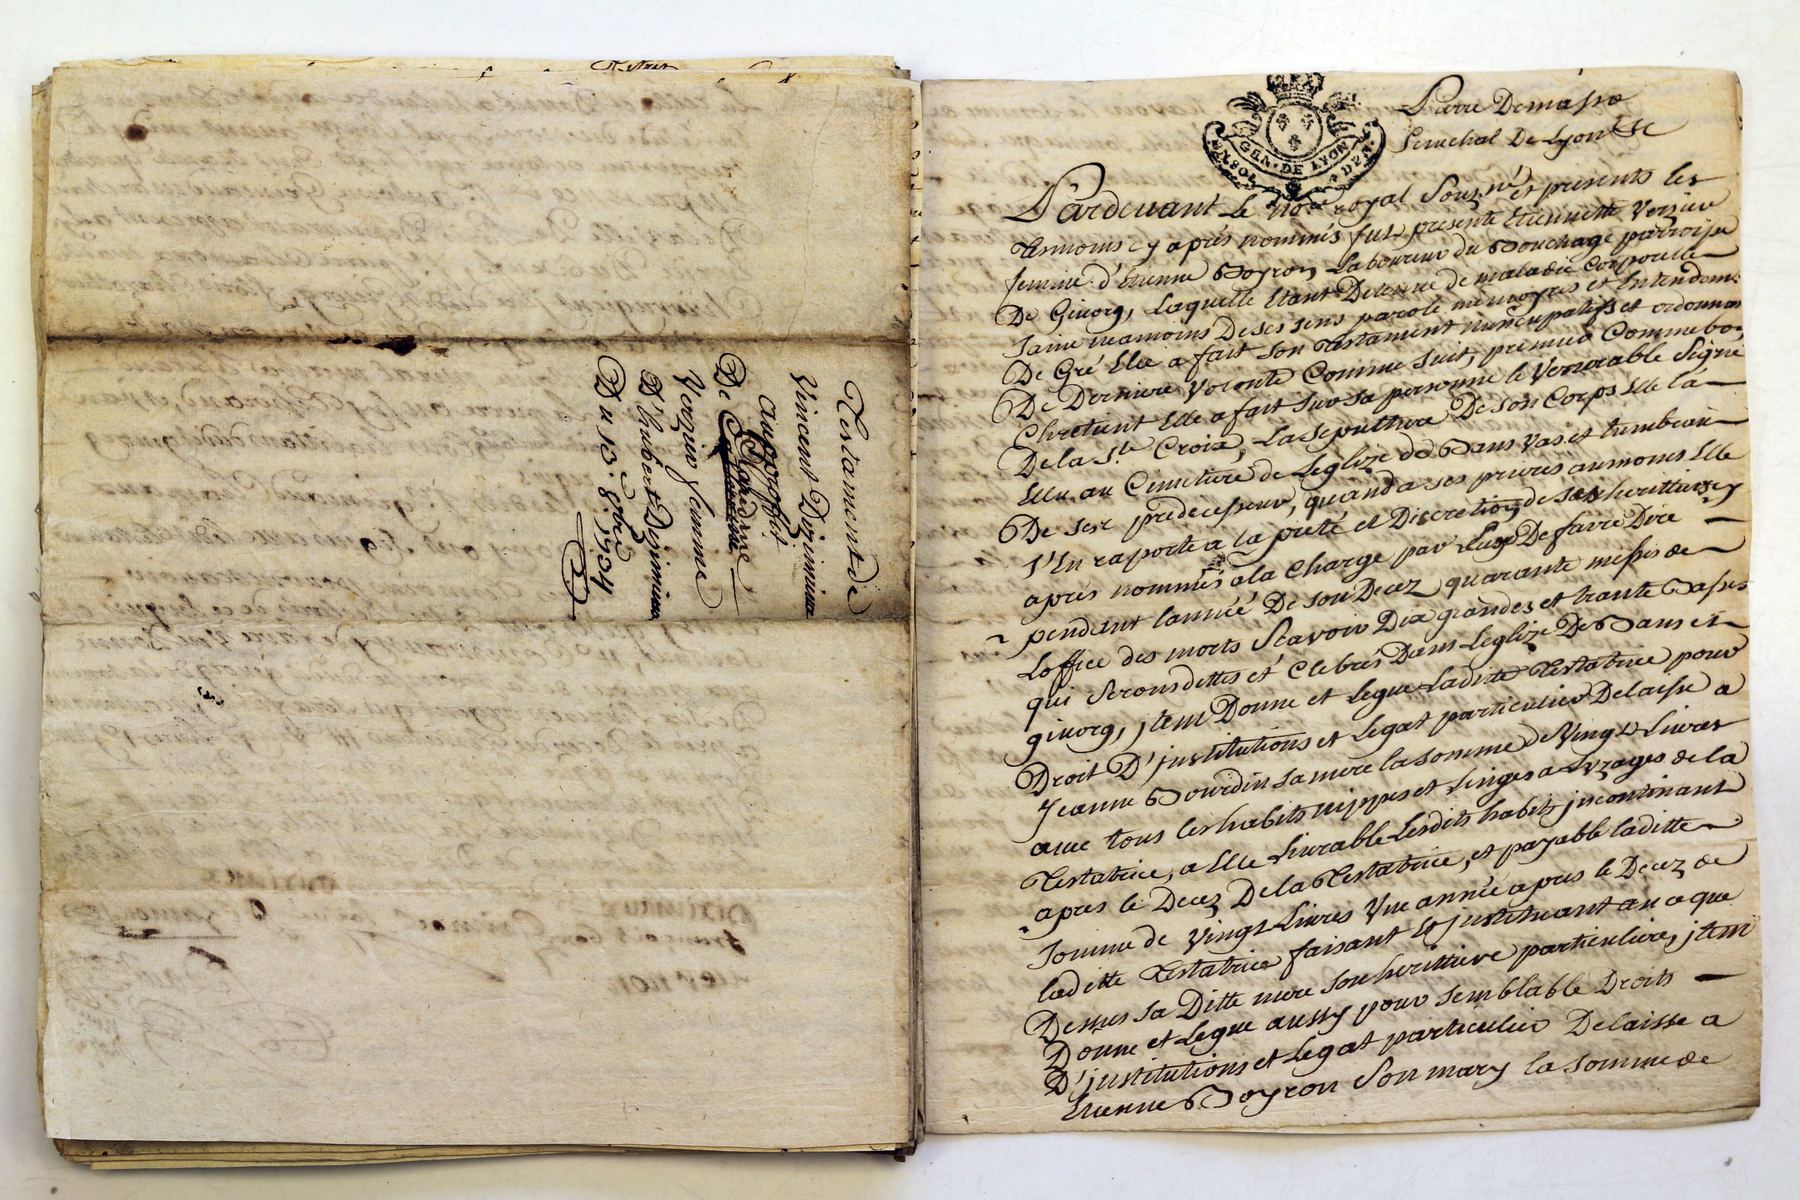 Testament de
Vincent Dizimieux
au proffit
De Claudine
Verzieu femme
D'hubert Dizimieux
Du 13e. 8bre 1734
GEN. DE LYON
Senechal De Lyon &c
Pardevant Le no.re royal Souz.né et presents les
Temoins cy après nommés fut presente Etiennette Verzieu
femme d'Etienne Boyron Laboureur du Bouchage parroisse
De Givorg, Laquelle Etant Detenue de maladie Corporelle
saine neamoins De ses sens parole memoyres et Entendem.t
De Gré Elle a fait son Testament nuncupatifs et ordonnan
De Derniere Volonté Comme suit, premier Comme bon
Chretient Elle a fait sur sa personne le Venerable Signe
De la S.te Croix, La Sepulture De son Corps Elle l'a
Elue au Cimetiere de Leglize de Bans Vas et tumbeau
De sese predecesseur, quand a ses prieres aumones Elle
s'En raporte a la pieté et Discretion de ses herittiers cy
après nommés a la Charge par Eux De faire Dire
pendant l'année De son Decez quarante messes de
Loffice des morts Scavoir Dix grandes et trante Basses
qui Seronsdittes et Clebrés Dans Leglize De Bans et
givorg, jtem Donne et Legue Laditte Testatrice pour
Droit D'justitutions et Legat particulier Delaisse a
Jeanne Bourdin sa mere la somme de Vingt Livres
avec tous les habits nippes et Linges a Lvzages de la
Testatrice, a Elle Livrable Lesdits habits jncontinant
apres le Decez De la Testatrice, et payable laditte
somme de Vingt Livres Vne année apres le Decez de
laditte Testatrice faisant et justituant en ce que
Dessus sa Ditte mere son herittiere particuliere, jtem
Donne et Legue aussy pour semblable Droits
D'justitutions et Legat particulier Delaisse a
Etienne Boyron Son mary la somme de